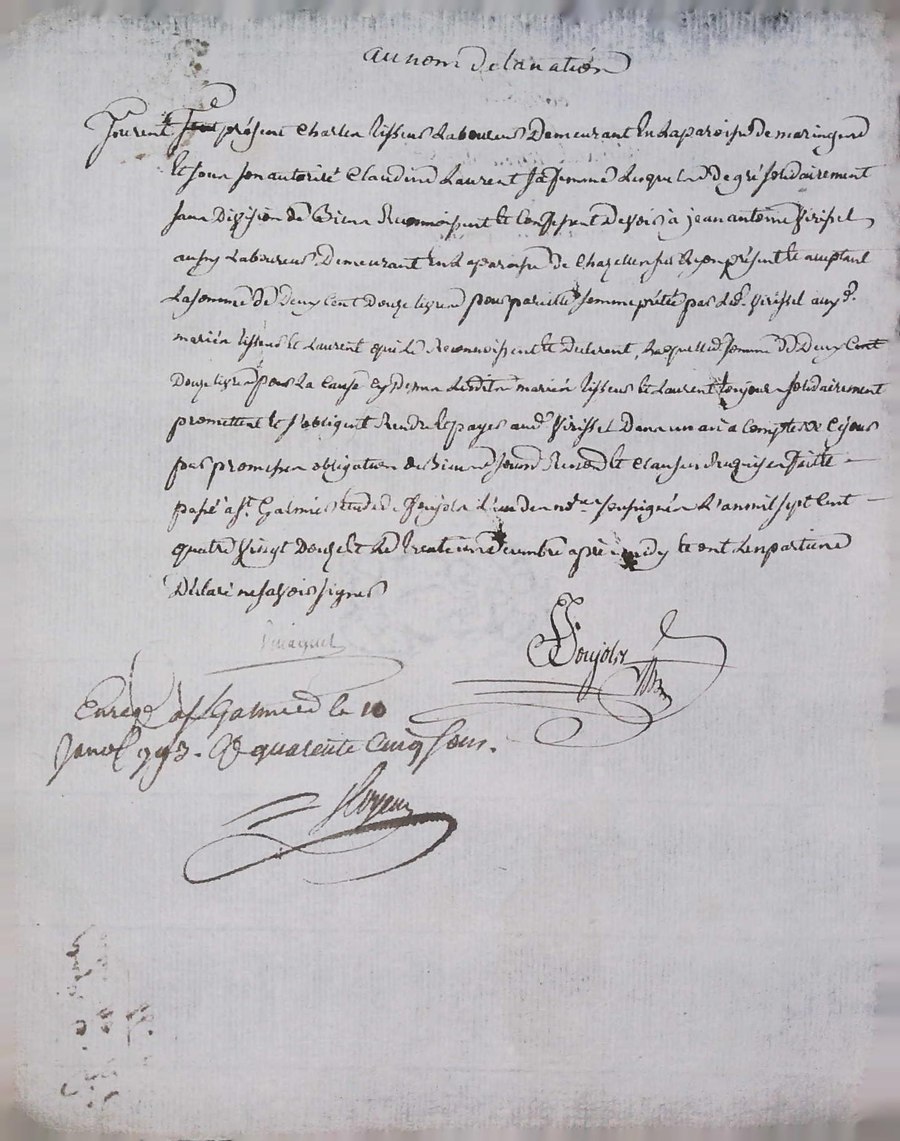 au nom de la nation
furent present Charles tisseur Laboureur Demeurant En La paroisse de maringes
Et sous son autorité Claudine Laurent sa femme Lesquels De gré solidairement
sans Division de Biens Reconnoissent et Confessent Devoir à jean antoine Virissel
aussy Laboureur Demeurant En La paroisse de Chazelles sur Lyon présent et acceptant
La somme de Deux Cent Douze livres pour pareille somme prétée par Led. Virissel auxd.
mariés tisseur et Laurent qui Le Reconnoissent et Declarent, Laquelle somme de Deux Cent
Douze livres pour La Cause Cy Dessus Lesdits mariés tisseur et Laurent toujours solidairement
promettent et s'obligent Rendre et payer aud. Virissel Dans un an a Compter de Ce jour
par promesses obligation de Biens Renond et Clauses Requises faitte
passé à st. Galmier Etude de Poujols L'un des nres. soussignés L'an mil sept Cent
quatre Vingt Douze et Le trente un décembre après midy et ont Les parties
Déclaré ne savoir signer
Poujols
Enregé a st Galmier le 10
Janvr 1793. R quarente Cinq sous.